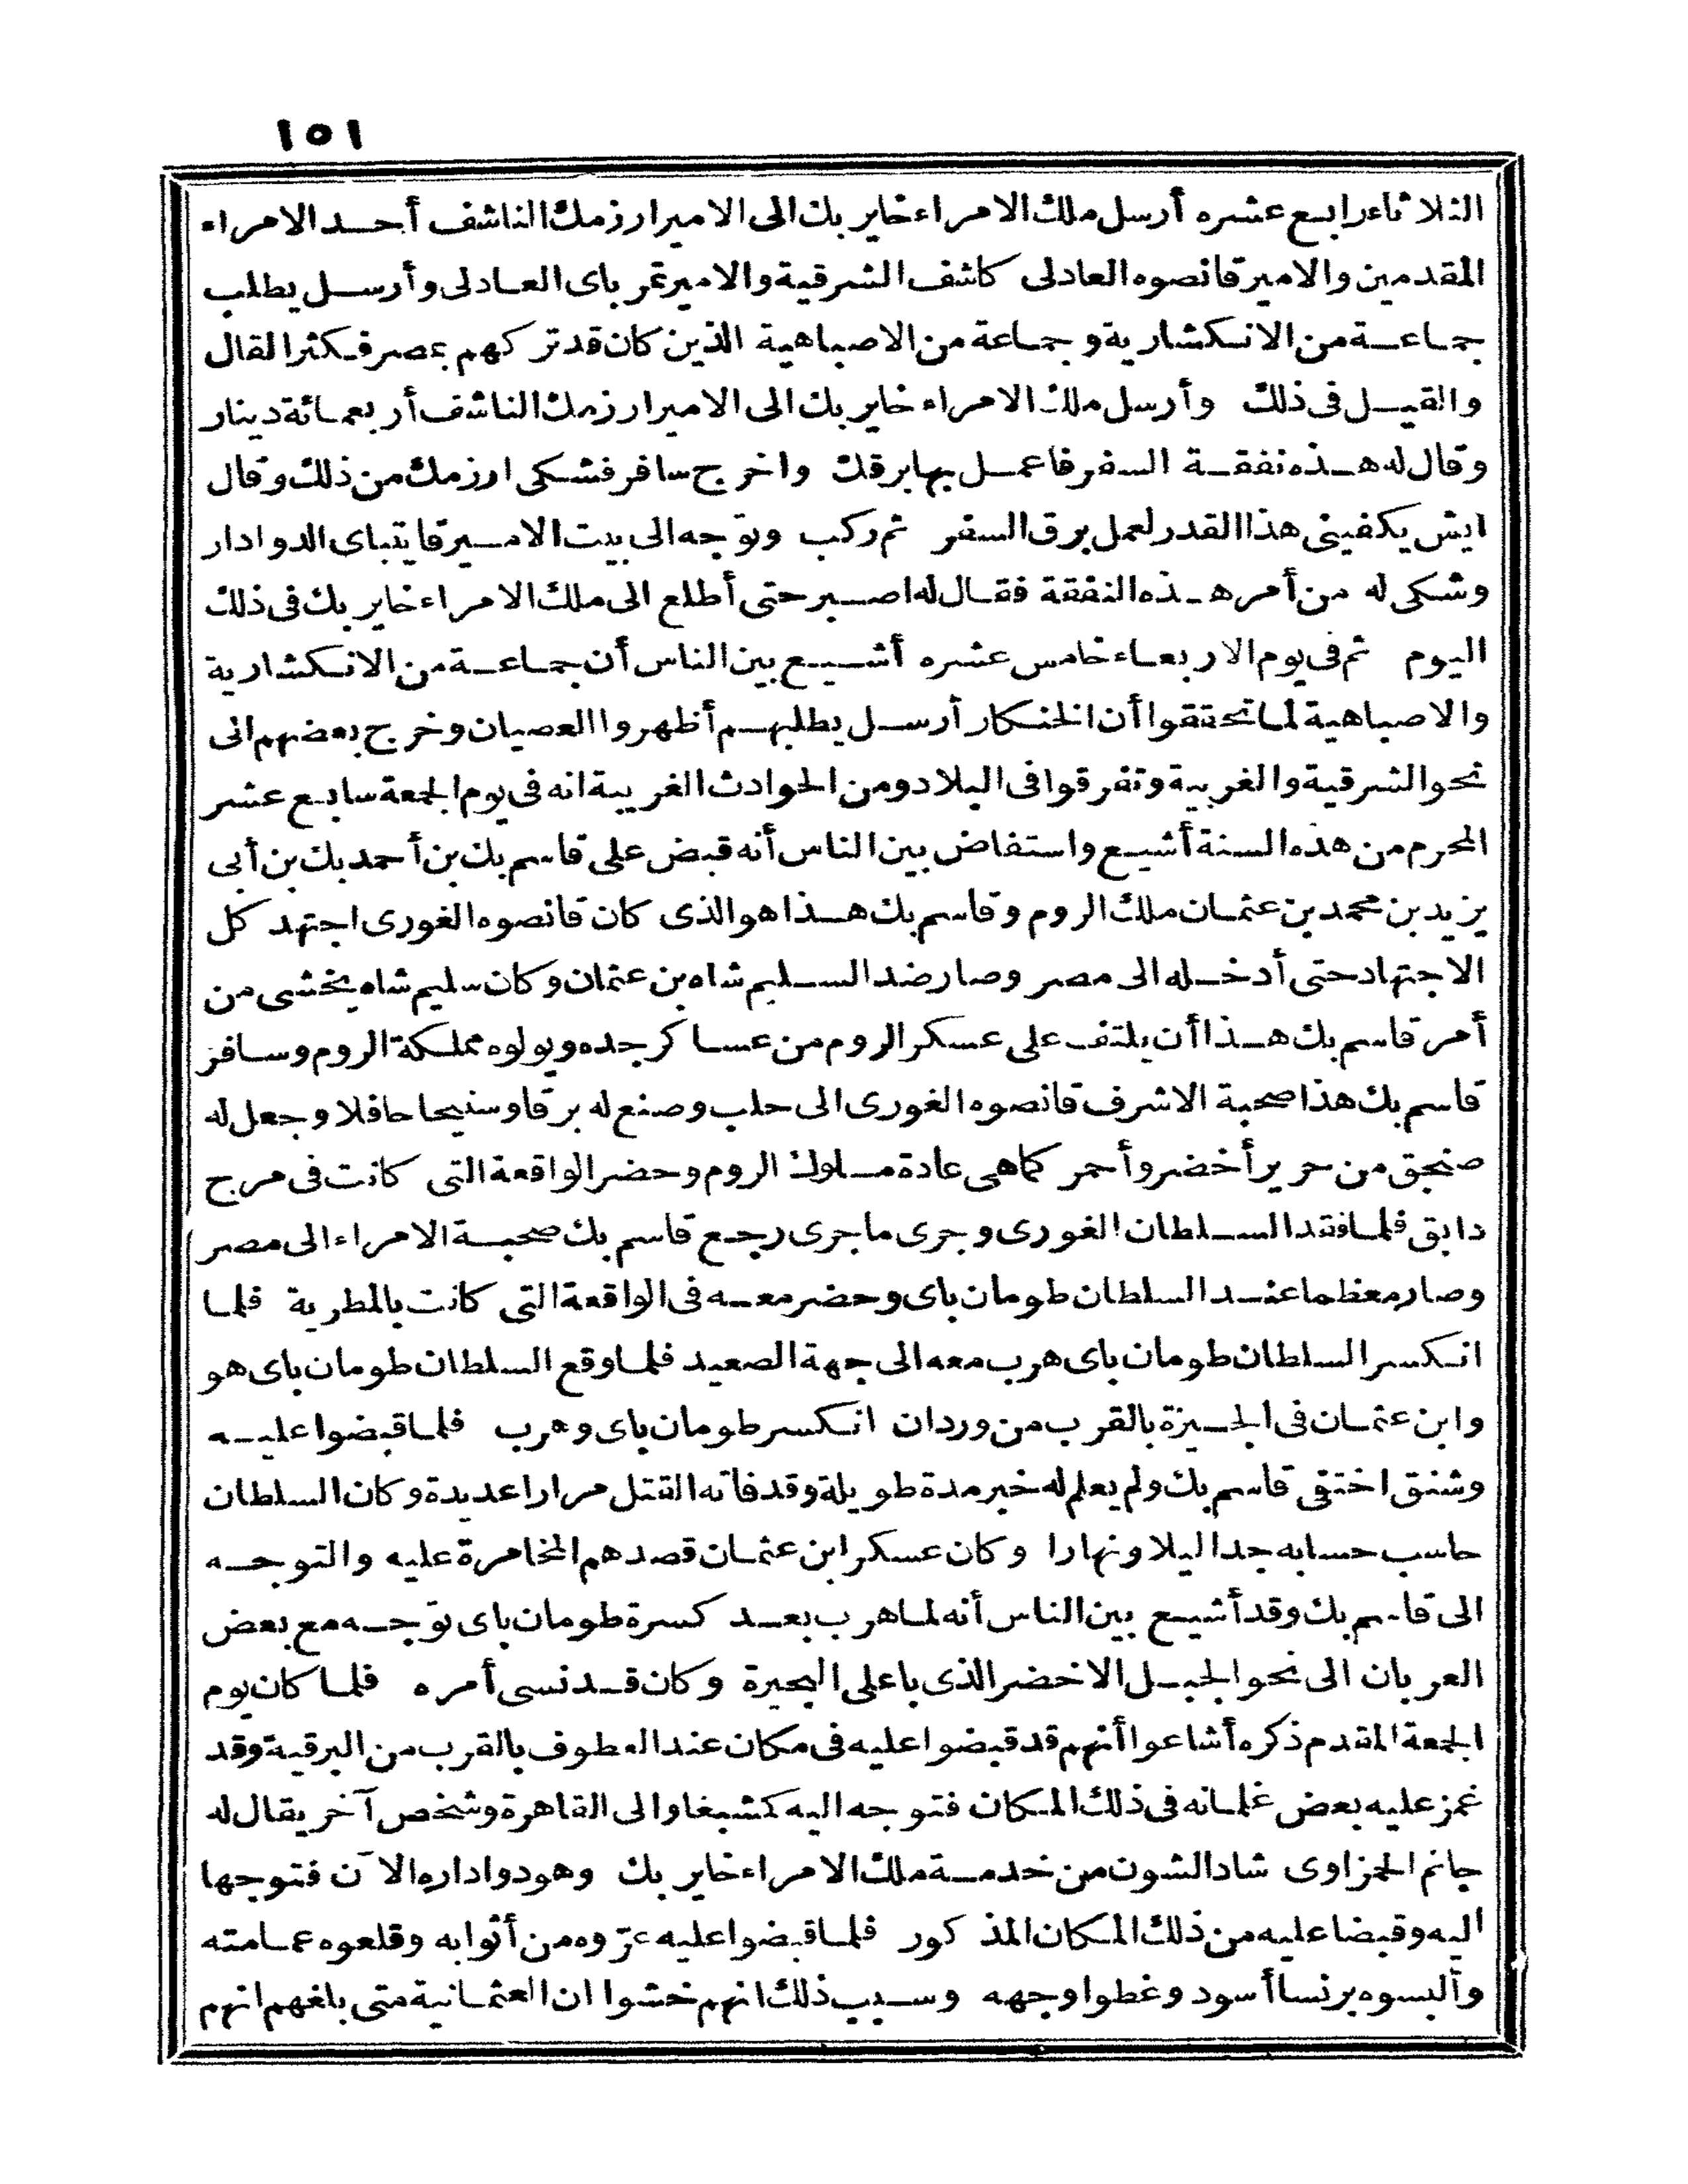 ١٥١
الثلاثاء رابع عشره أرسل ملك الامراء خاير بك الى الامير ارزمك الناشف أحد الامراء
المقدمين والامير قانصوه العادلى كاشف الشرقية والامير تمر باى العادلى وأرسل يطلب
جماعة من الانكشارية وجماعة من الاصباهية الذين كان قد تركهم بمصر فكثر القال
والقيل فى ذلك وأرسل ملك الامراء خاير بك الى الامير ارزمك الناشف أربعمائة دينار
وقال له هذه نفقة السفر فاعمل بها برقك واخرج سافر فشكى ارزمك من ذلك وقال
ايش يكفينى هذا القدر لعمل برق السفر ثم ركب وتوجه الى بيت الامير قايتباى الدوادار
وشكى له من أمر هذه النفقة فقال له اصبر حتى أطلع الى ملك الامراء خاير بك فى ذلك
اليوم ثم فى يوم الاربعاء خامس عشره أشيع بين الناس أن جماعة من الانكشارية
والاصباهية لما تحققوا أن الخنكار أرسل يطلبهم أظهروا العصيان وخرج بعضهم الى
نحو الشرقية والغربية وتفرقوا فى البلاد ومن الحوادث الغريبة انه فى يوم الجمعة سابع عشر
المحرم من هذه السنة أشيع واستفاض بين الناس أنه قبض على قاسم بك بن أحمد بك بن أبى
يزيد بن محمد بن عثمان ملك الروم وقاسم بك هذا هو الذى كان قانصوه الغورى اجتهد كل
الاجتهاد حتى أدخله الى مصر وصار ضدا لسليم شاه بن عثمان وكان سليم شاه يخشى من
أمر قاسم بك هذا أن يلتف على عسكر الروم من عساكر جده ويولوه مملكة الروم وسافر
قاسم بك هذا صحبة الاشرف قانصوه الغورى الى حلب وصنع له برقا وسنيحا حافلا وجعل له
صنجق من حرير أخضر وأحمر كما هى عادة ملوك الروم وحضر الواقعة التى كانت فى مرج
دابق فلما فقد السلطان الغورى وجرى ما جرى رجع قاسم بك صحبة الامراء الى مصر
وصار معظما عند السلطان طومان باى وحضر معه فى الواقعة التى كانت بالمطرية فلما
انكسر السلطان طومان باى هرب معه الى جهة الصعيد فلما وقع السلطان طومان باى هو
وابن عثمان فى الجيزة بالقرب من وردان انكسر طومان باى وهرب فلما قبضوا عليه
وشنق اختفى قاسم بك ولم يعلم له خبر مدة طويلة وقد فاته القتل مرارا عديدة وكان السلطان
حاسب حسابه جدا ليلا ونهارا وكان عسكر ابن عثمان قصدهم المخامرة عليه والتوجه
الى قاسم بك وقد أشيع بين الناس أنه لما هرب بعد كسرة طومان باى توجه مع بعض
العربان الى نحو الجبل الاخضر الذى باعلى البحيرة وكان قد نسى أمره فلما كان يوم
الجمعة المقدم ذكره أشاعوا أنهم قد قبضوا عليه فى مكان عند العطوف بالقرب من البرقية وقد
غمز عليه بعض غلمانه فى ذلك المكان فتوجه اليه كمشبغا والى القاهرة وشخص آخر يقال له
جانم الحمزاوى شاد الشون من خدمة ملك الامراء خاير بك وهو دواداره الآن فتوجها
اليه وقبضا عليه من ذلك المكان المذكور فلما قبضوا عليه عروه من أثوابه وقلعوه عمامته
وألبسوه برنسا أسود وغطوا وجهه وسبب ذلك انهم خشوا ان العثمانية متى بلغهم انهم